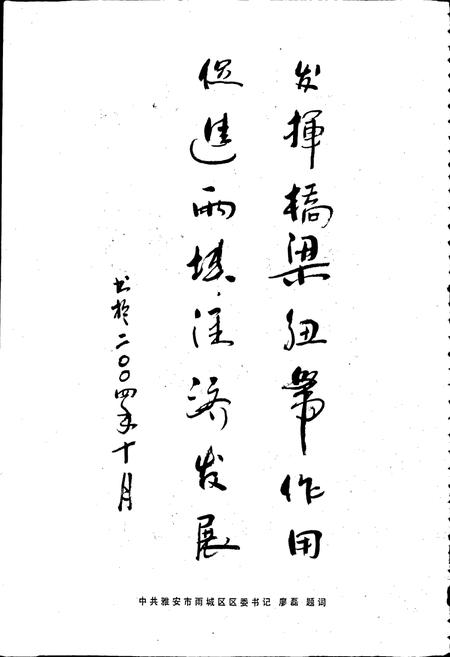 发挥桥梁纽带作用
促进雨城经济发展
书於二〇〇四年十月
中共雅安市雨城区区委书记 廖磊 题词